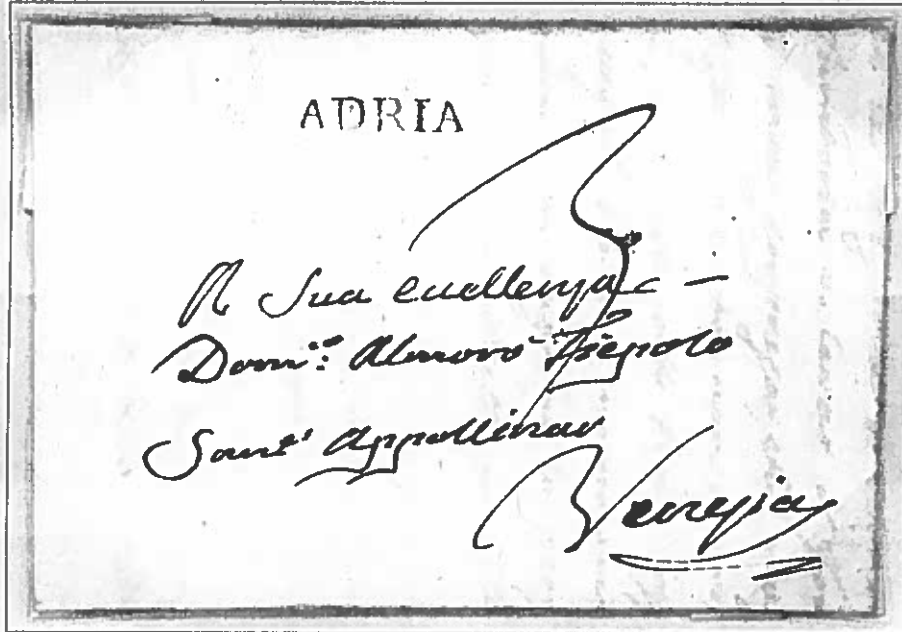 ADRIA
A Sua Eccellenza
Domi.º Almorò Tiepolo
Sant' Appollinar
Venezia